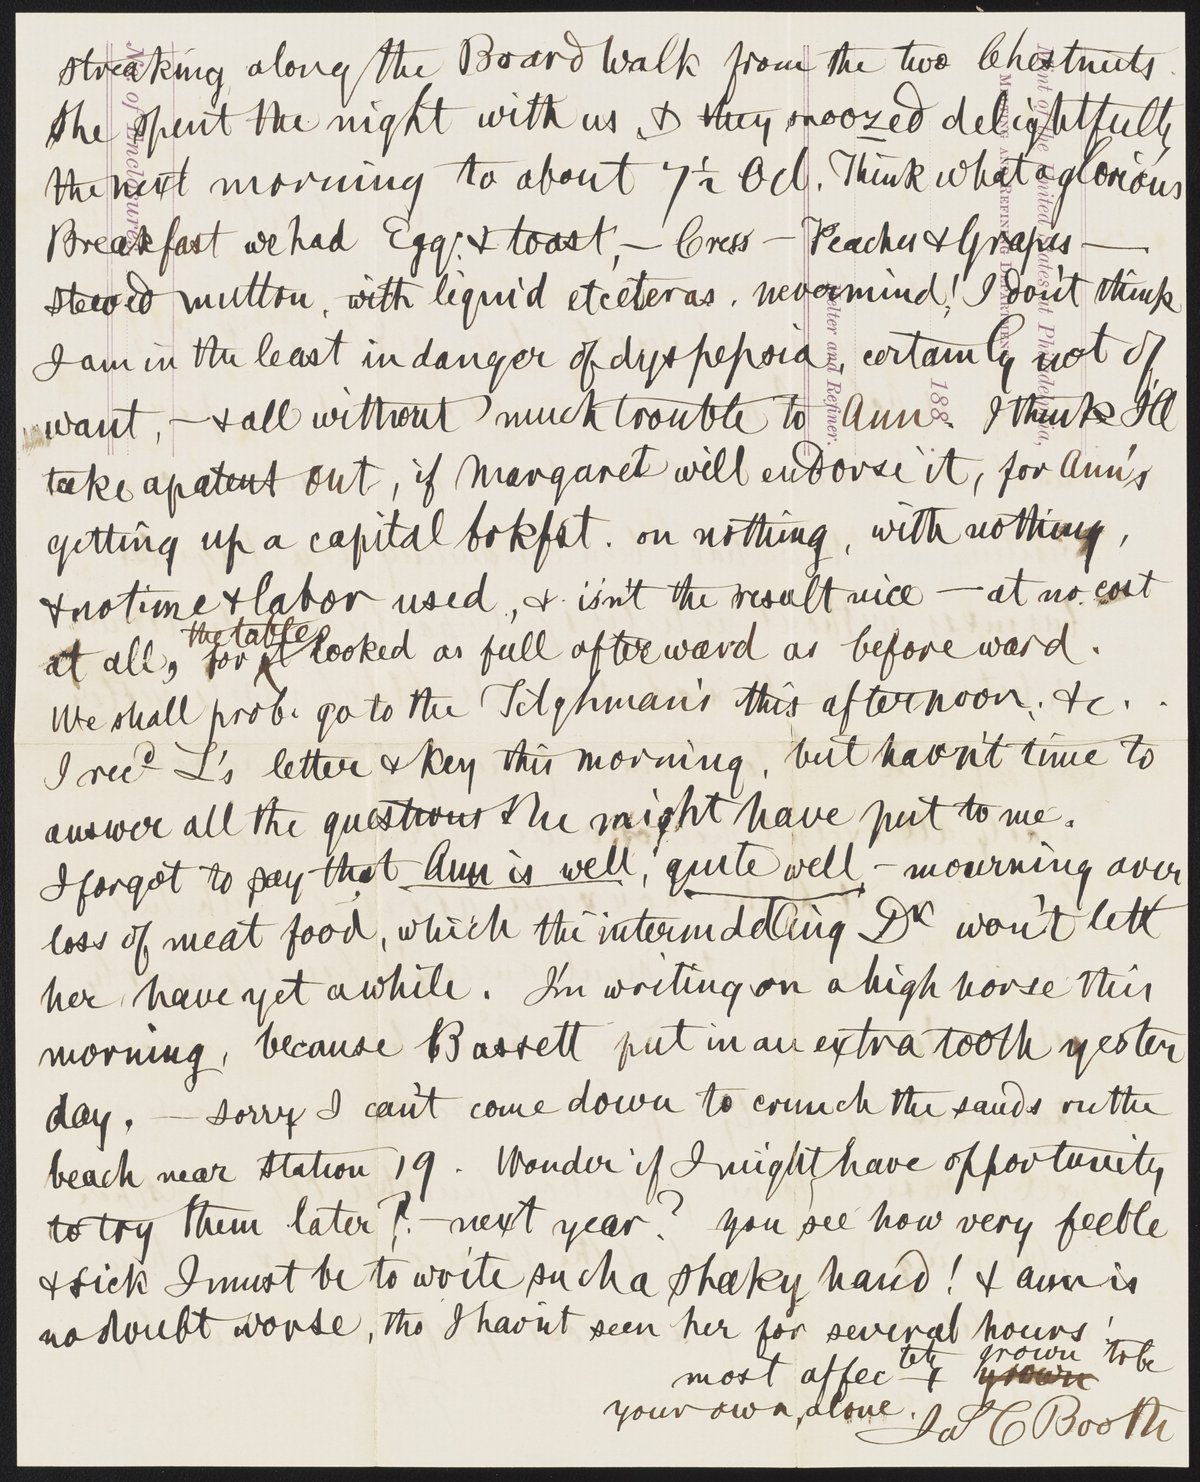 streaking along the Board Walk from the two Chestnuts.
She spent the night with us, & they snoozed delightfully
the next morning to about 7½ Ocl. Think what a glorious
Breakfast we had Egg: & toast, — Cress — Peaches & Grapes —
stewed mutton, with liquid etceteras. nevermind! I don't think
I am in the least in danger of dyspepsia, certainly not of
want, — & all without much trouble to Ann. I think I'll
take a patent out, if Margaret will endorse it, for Ann's
getting up a capital bokfst. on nothing, with nothing,
& no time & labor used, & isn't the result nice — at no cost
at all, for the table looked as full afterward as beforeward.
We shall prob. go to the Tilghman's this afternoon, &c.
I recd L's letter & key this morning, but havn't time to
answer all the questions She might have put to me.
I forgot to say that Ann is well, quite well — mourning over
loss of meat food, which the intermeddling Dr won't lett
her have yet awhile. I'm writing on a high horse this
morning, because Bassett put in an extra tooth yester
day. — sorry I can't come down to crunch the sands on the
beach near Station 19. Wonder if I might have opportunity
to try them later? — next year? you see how very feeble
& sick I must be to write such a shaky hand! & Ann is
no doubt worse, tho I havn't seen her for several hours!
most affectely & grown to be
your own, alone.
Jas C Booth
No. of Inclosures
Mint of the United States at Philadelphia,
MELTING AND REFINING DEPARTMENT,
188
Melter and Refiner.